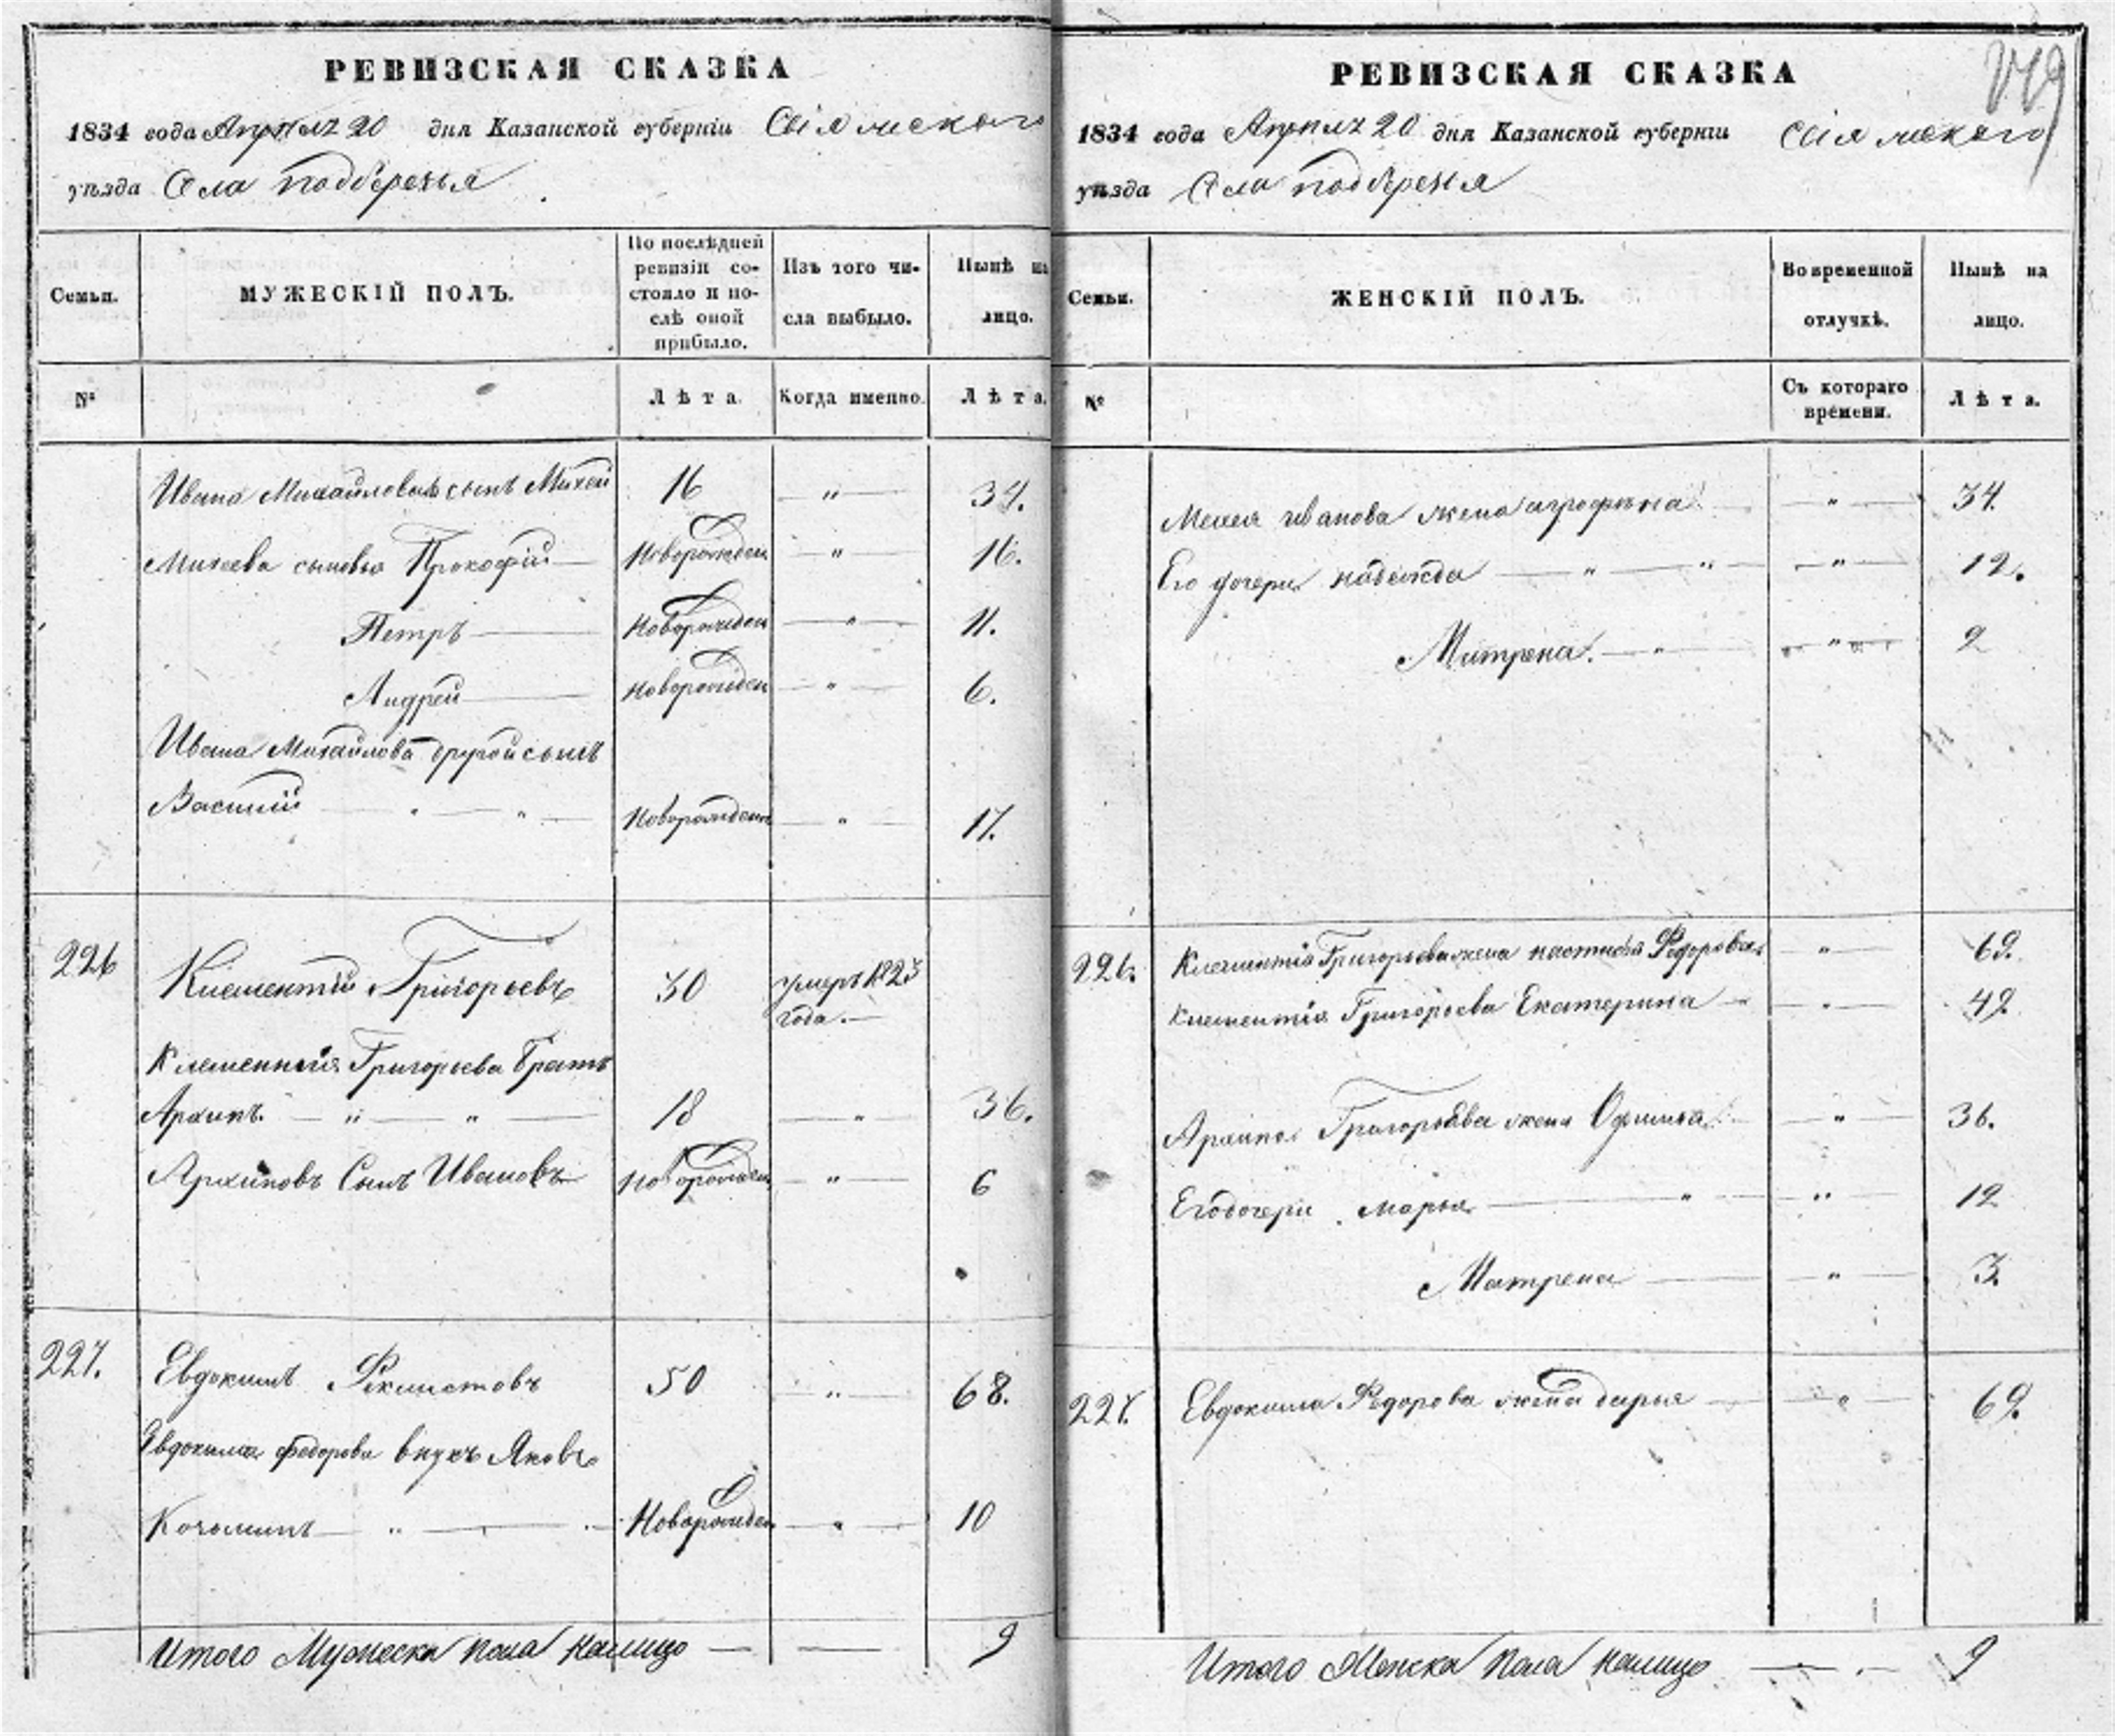 РЕВИЗСКАЯ СКАЗКА
1834 года Апреля 20 дня Казанской губерніи Свіяжскаго
уѣзда Села подберезья
Семьи.
МУЖЕСКІЙ ПОЛЪ.
По послѣдней ревизіи состояло и послѣ оной прибыло.
Изъ того числа выбыло.
Нынѣ на лицо.
№
Лѣта.
Когда именно.
Лѣта.
Ивана Михайлова сынъ Михей 16 — " — 34.
Михеева сыновья Прокофій — Новорожден — " — 16.
Петръ — Новорожден — " — 11.
Андрей — Новорожден — " — 6.
Ивана Михайлова другой сынъ
Василий — " — " — Новорожден — " — 17.
226 Клементий Григорьевъ 50 умеръ 1823
года. —
Клементия Григорьева братъ
Архипъ. — " — " — 18 — " — 36.
Архиповъ Сынъ Ивановъ Новорожден — " — 6
227. Евдокимъ 50 — " — 68.
Евдокима федорова внукъ Яковъ
— " — Новорожден — " — 10
Итого Мужеска пола налицо — — 9
РЕВИЗСКАЯ СКАЗКА
1834 года Апреля 20 дня Казанской губерніи Свіяжскаго
уѣзда Села подберезья
Семьи.
ЖЕНСКІЙ ПОЛЪ.
Во временной отлучкѣ.
Нынѣ на лицо.
№
Съ котораго времени.
Лѣта.
Михея иванова жена агрофена — " — 34.
Его дочери надежда — " — " — " — 12.
Матрена. — " — " — 2
226. Клементия Григорьева жена настасья Федорова — " — 62.
Клементия Григорьева Екатерина — " — 42
Архипа Григорьева жена Офимья — " — 36.
Его дочери марья — " — " — 12
Матрена — " — 3.
227. Евдокима Федорова жена дарья — " — 62.
Итого Женска пола налицо — — 9